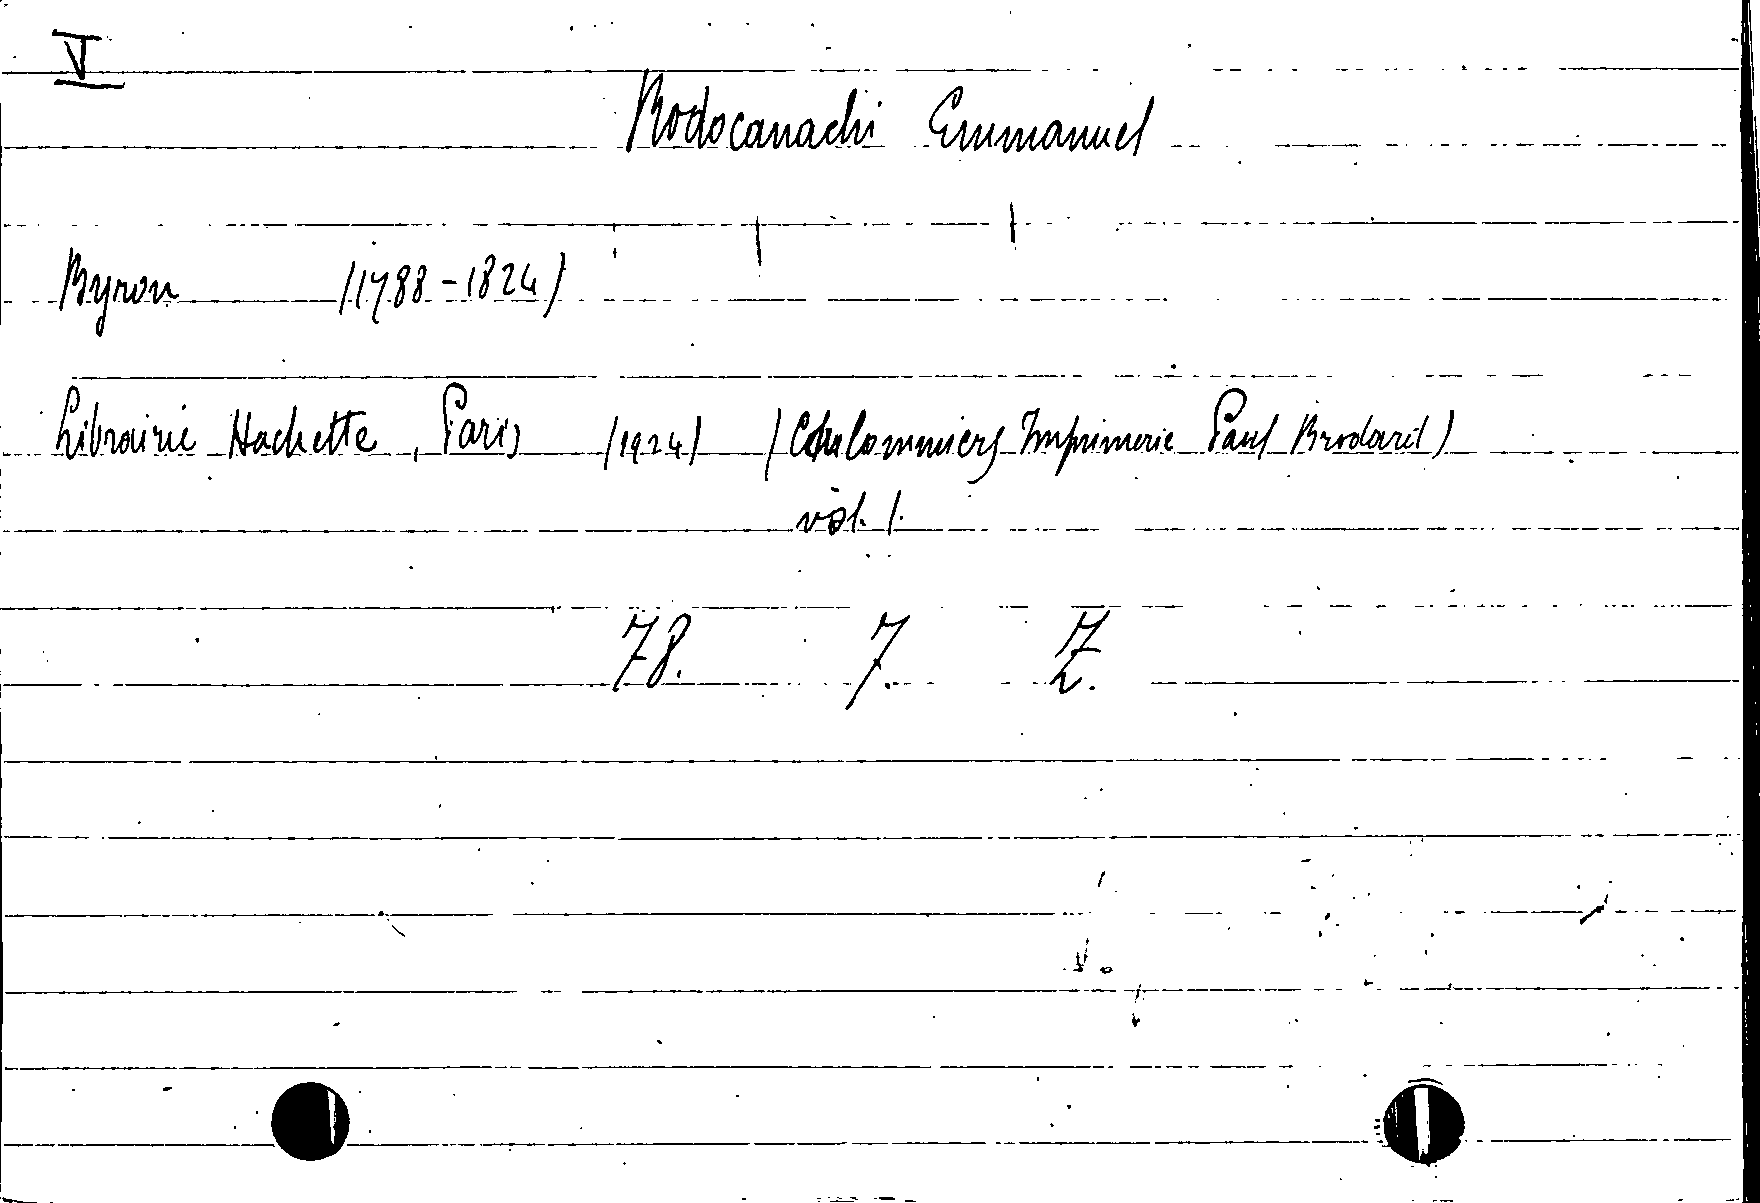 V
Rodocanachi Emmanuel
Byron (1788-1824)
Librairie Hachette, Paris (1924) (Coulommiers Imprimerie Paul Brodard)
vol. 1.
78. 7. Z.